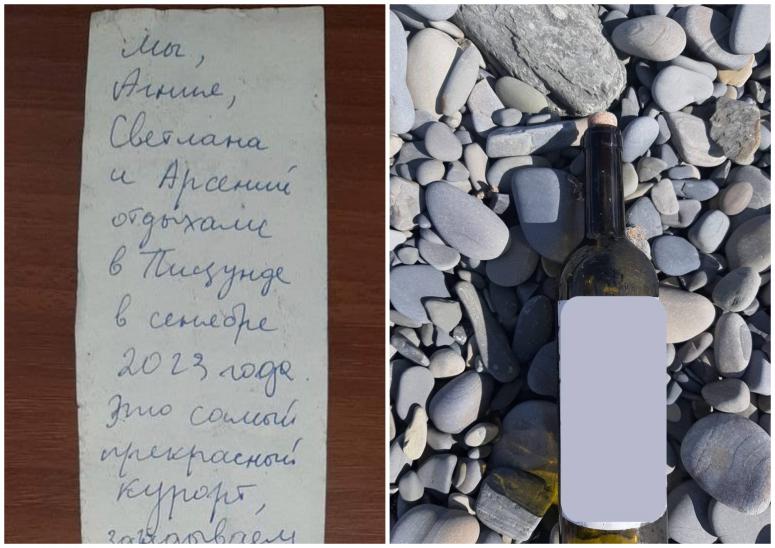 Мы,
Агния,
Светлана
и Арсений
отдыхали
в Пицунде
в сентябре
2023 года.
Это самый
прекрасный
курорт,
загадываем